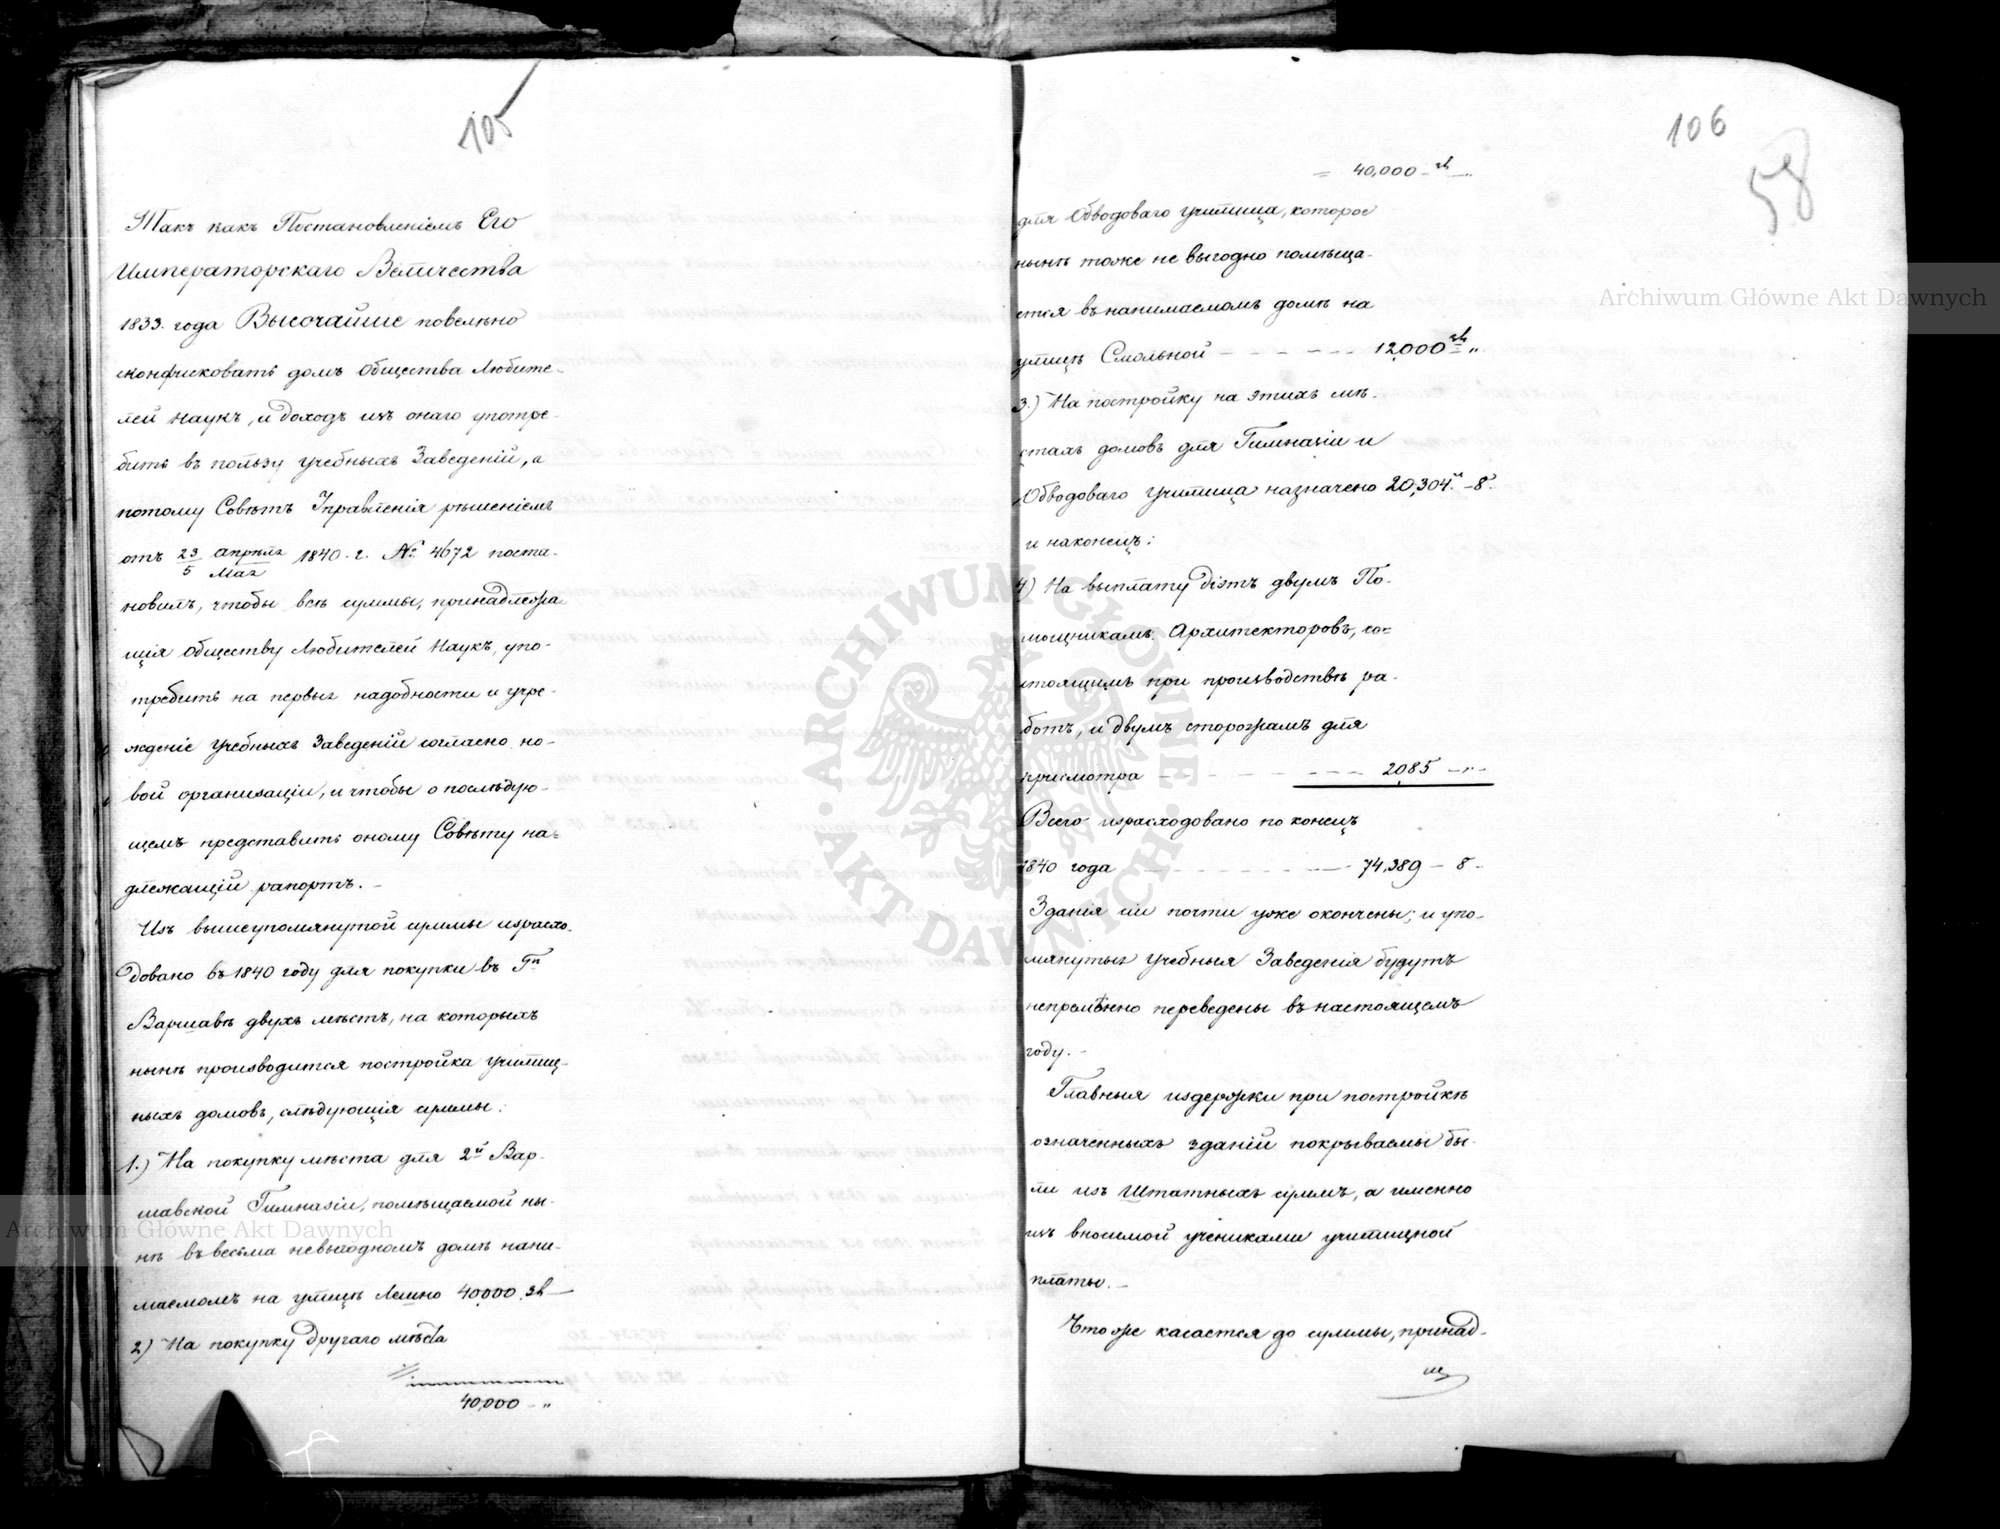 105
Такъ какъ Постановленіемъ Его
Императорскаго Величества
1833. года Высочайше повелѣно
сконфисковать домъ Общества Любите-
лей Наукъ, и доходъ изъ онаго употре-
бить въ пользу учебныхъ Заведеній, а
потому Совѣтъ Управленія рѣшеніемъ
отъ 23/5 Апрѣля/Мая 1840. г. № 4672 поста-
новилъ, чтобы всѣ суммы, принадлежа
щія Обществу Любителей Наукъ, упо-
требить на первыя надобности и учре-
жденіе учебныхъ Заведеній согласно но-
вой организаціи, и чтобы о послѣдую-
щемъ представить оному Совѣту на-
длежащій рапортъ.-
Изъ вышеупомянутой суммы израсхо-
довано въ 1840 году для покупки въ Гд
Варшавѣ двухъ мѣстъ, на которыхъ
нынѣ производится постройка училищ-
ныхъ домовъ, слѣдующія суммы:
1.) На покупку мѣста для 2й Вар-
шавской Гимназіи, помѣщаемой ны-
нѣ въ весьма невыгодномъ домѣ нани-
маемомъ на улицѣ Лешно 40,000 зл
2) На покупку другаго мѣста
40,000 - "
106
58
= 40,000 - зл - "
для Обводоваго училища, которое
нынѣ тоже не выгодно помѣща-
ется въ нанимаемомъ домѣ на
улицѣ Смольной - - - - - 12,000 зл "
3.) На постройку на этихъ мѣ-
стахъ домовъ для Гимназіи и
Обводоваго училища назначено 20,304 - 8
и наконецъ:
4) На выплату діэтъ двумъ По-
мощникамъ Архитекторовъ, со-
стоящимъ при производствѣ ра-
ботъ, и двумъ сторожамъ для
присмотра - - - - - - - 2,085 - " -
Всего израсходовано по конецъ
1840 года - - - - - - - 74,389 - 8 -
Зданія сіи почти уже окончены; и упо-
мянутыя учебныя Заведенія будутъ
непремѣнно переведены въ настоящемъ
году.-
Главныя издержки при постройкѣ
означенныхъ зданій покрываемы бы-
ли изъ Штатныхъ суммъ, а именно
изъ вносимой учениками училищной
платы.-
Что же касается до суммы, принад-
Archiwum Główne Akt Dawnych
Archiwum Główne Akt Dawnych
ARCHIWUM GŁÓWNE · AKT DAWNYCH ·